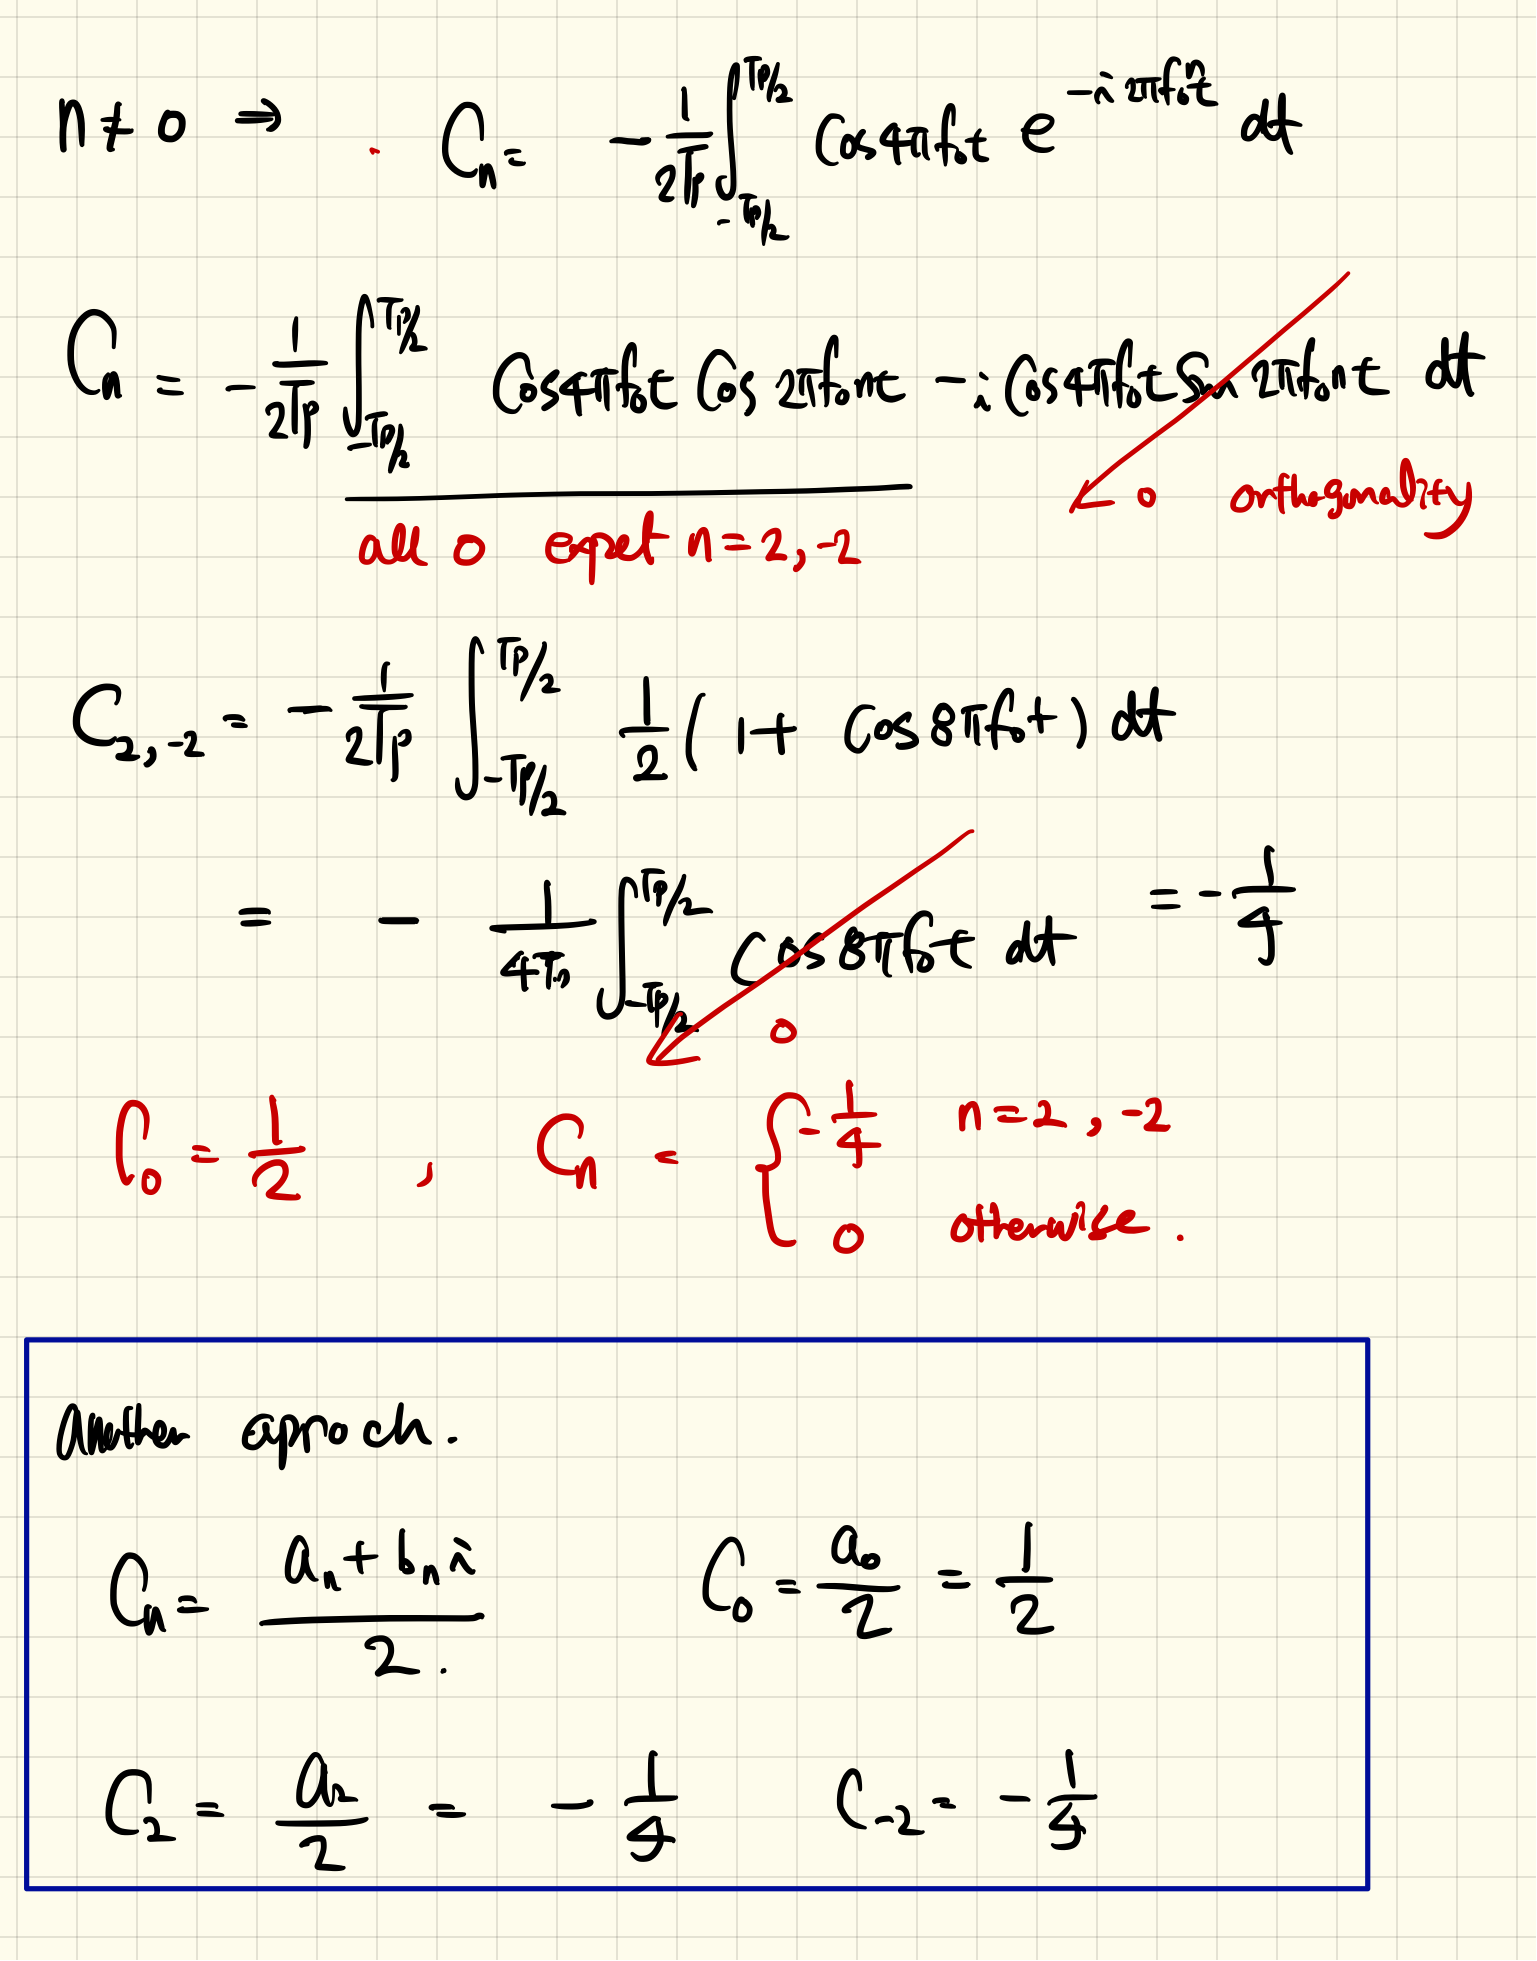 n ≠ 0 ⇒ C_n = -1/(2Tp) ∫_{-Tp/2}^{Tp/2} Cos4πf₀t e^{-i2πf₀nt} dt
C_n = -1/(2Tp) ∫_{-Tp/2}^{Tp/2} Cos4πf₀t Cos2πf₀nt - i Cos4πf₀t Sin 2πf₀nt dt
0 orthogonality
all 0 expet n=2,-2
C_{2,-2} = -1/(2Tp) ∫_{-Tp/2}^{Tp/2} 1/2 (1+ Cos8πf₀t) dt
= - 1/(4Tp) ∫_{-Tp/2}^{Tp/2} Cos8πf₀t dt = -1/4
0
C₀ = 1/2 , C_n = { -1/4 n=2,-2
0 otherwise.
another aproch.
C_n = (a_n + b_n i)/2. C₀ = a₀/2 = 1/2
C₂ = a₂/2 = -1/4 C₋₂ = -1/4